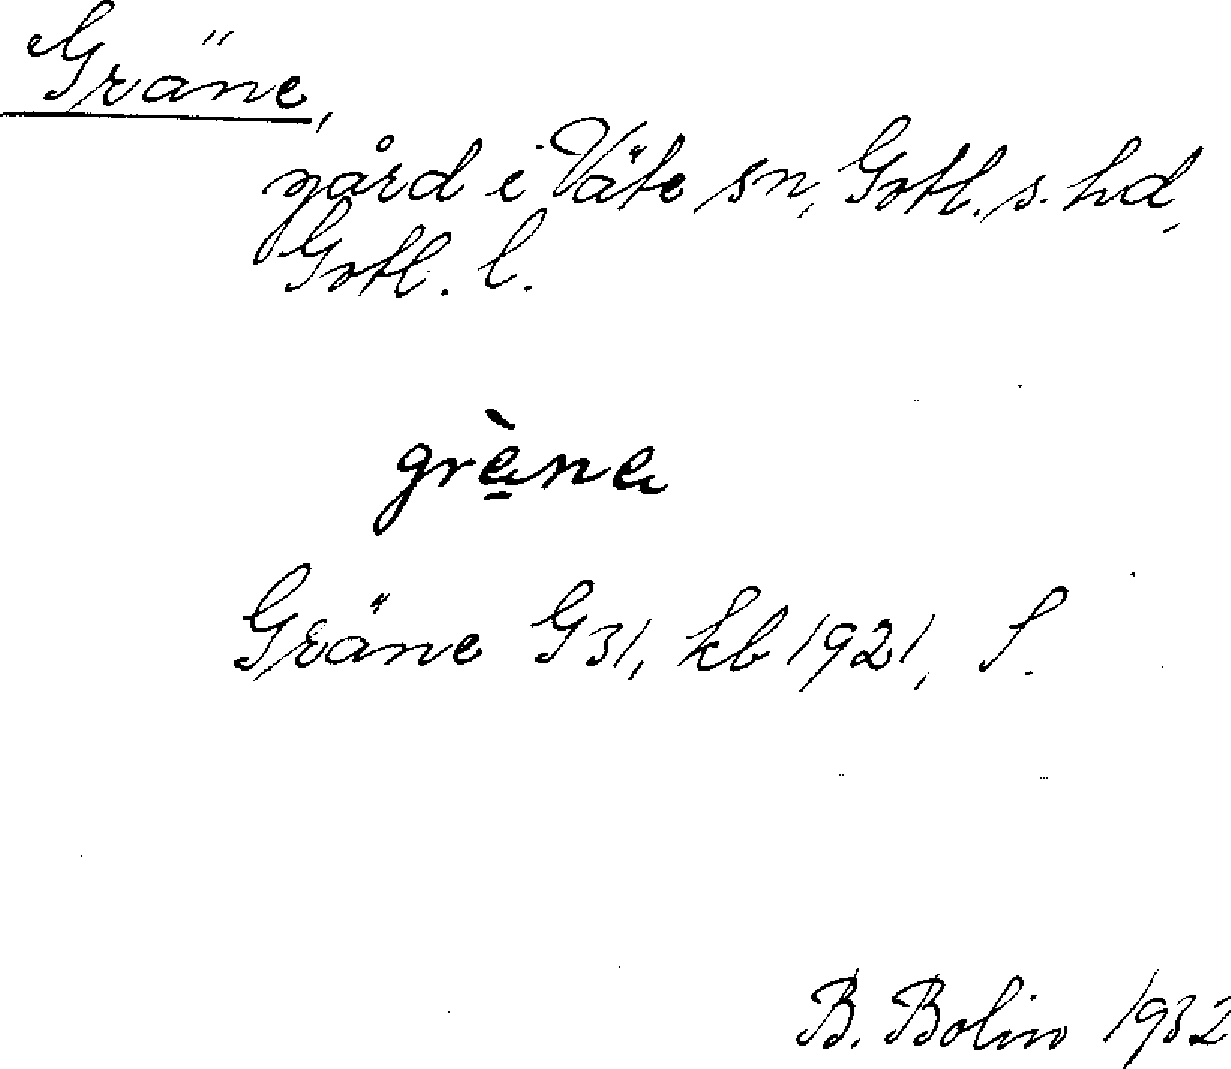 Gräne,
gård i Väte sn, Gotl. s. hd,
Gotl. l.
grèna
Gräne G 31, kb 1921, S.
B. Bolin 1932